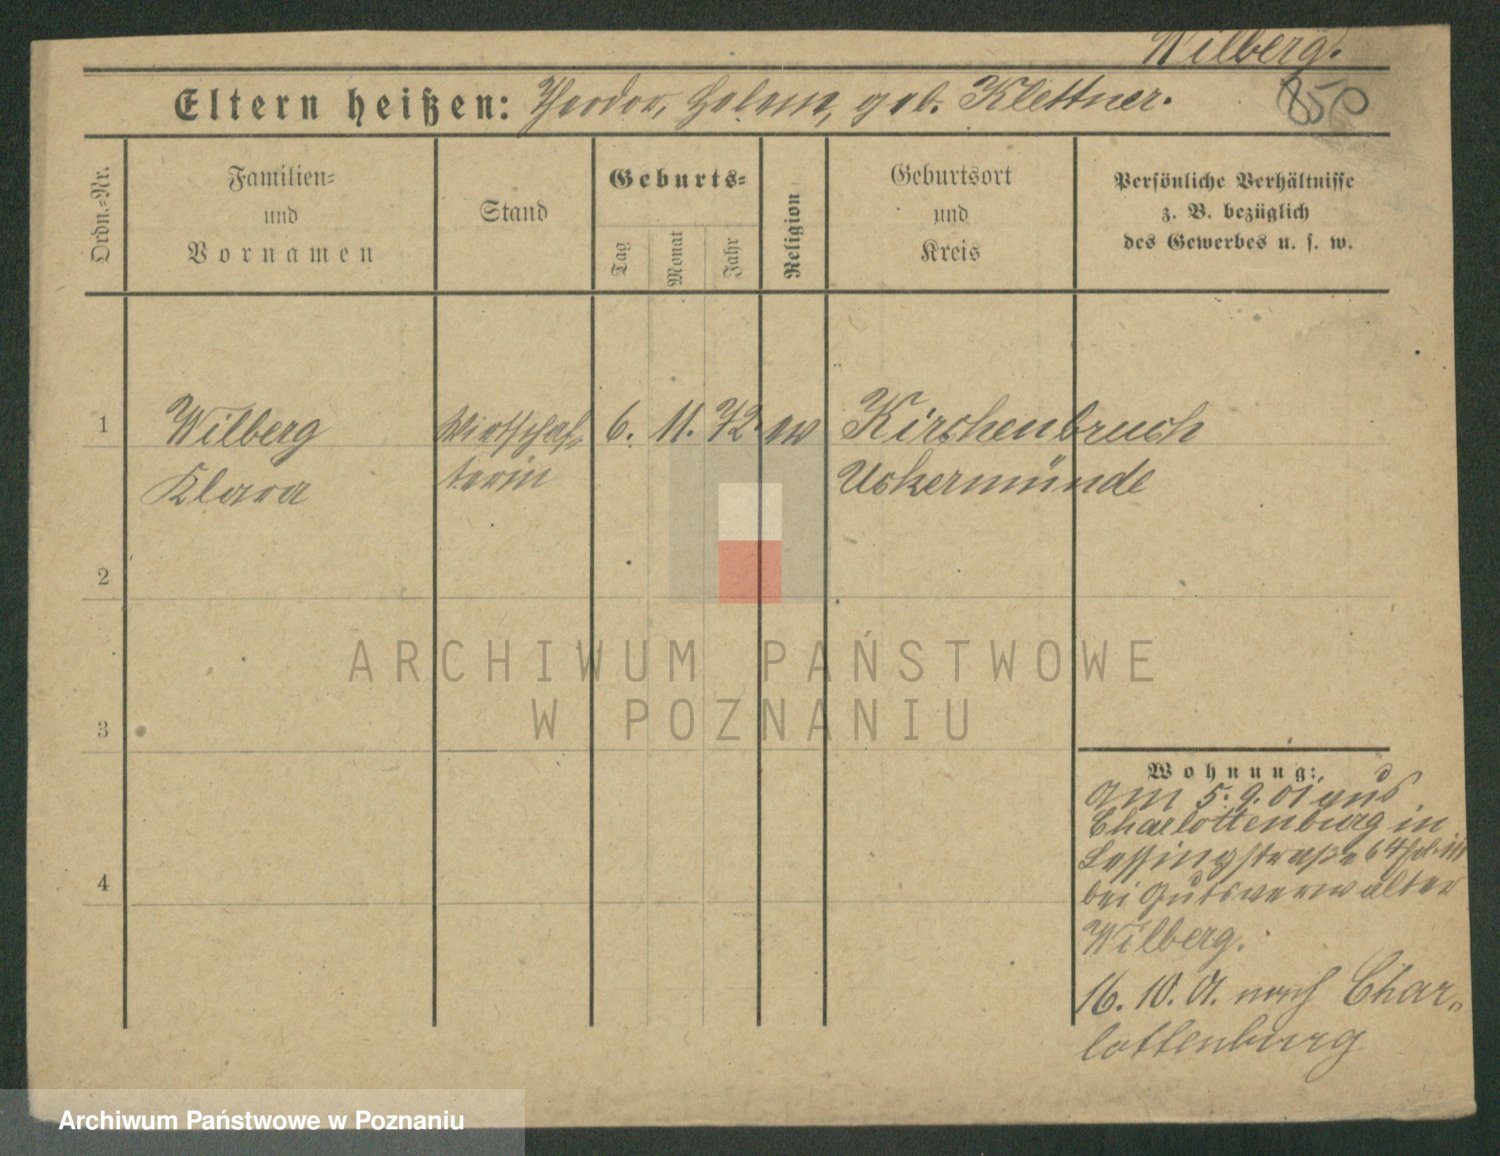 Wilberg.
850
Eltern heißen: Theodor, Helene, geb. Klettner.
Ordn.-Nr.
Familien-
und
Vornamen
Stand
Geburts-
Tag
Monat
Jahr
Religion
Geburtsort
und
Kreis
Persönliche Verhältnisse
z. B. bezüglich
des Gewerbes u. s. w.
1 Wilberg Wirtschaf- 6. 11. 72. ev Kirschenbruch
Klara terin Uckermünde
2
3
4
ARCHIWUM PAŃSTWOWE
W POZNANIU
Wohnung:
Am 5. 9. 01 aus
Charlottenburg in
Lessingstraße 6
bei Gutsverwalter
Wilberg.
16. 10. 01. nach Char-
lottenburg
Archiwum Państwowe w Poznaniu